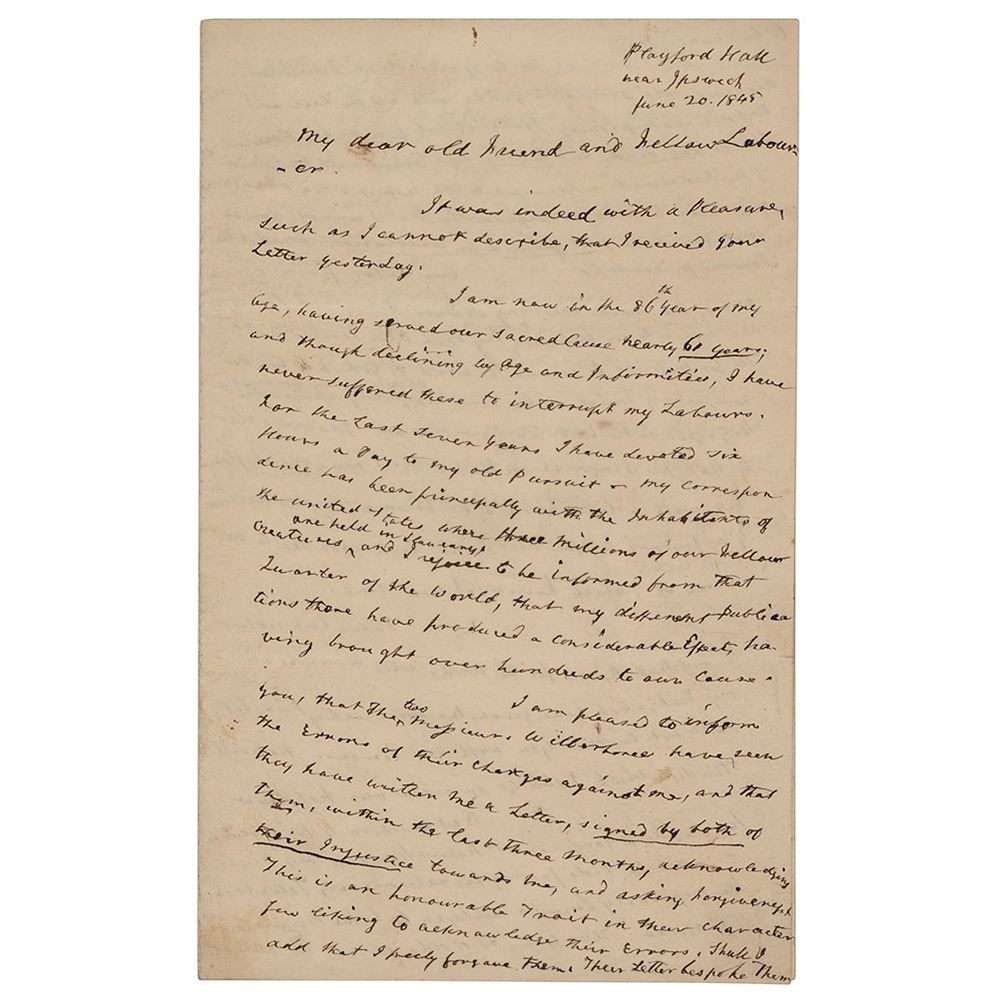 Playford Hall
near Ipswich
June 20. 1845
My dear old Friend and Fellow Labour-
-er.
It was indeed with a Pleasure,
such as I cannot describe, that I received your
Letter yesterday.
I am now in the 86th year of my
Age, having served our sacred Cause nearly 61 years;
and though declining by Age and Infirmities, I have
never suffered these to interrupt my Labours.
For the last seven years I have devoted six
Hours a Day to my old Pursuit & my correspon
dence has been principally with the Inhabitants of
the united States where three Millions of our Fellow
are held in Slavery
Creatures, and I rejoice to be informed from that
Quarter of the World, that my different Publica
tions there have produced a considerable Effect, ha-
ving brought over hundreds to our Cause.
I am pleased to inform
you, that the two Messieurs Wilberforce have seen
the Errors of their charges against me, and that
they have written me a Letter, signed by both of
them, within the last three Months, acknowledging
their Injustice towards me, and asking Forgiveness
This is an honourable Trait in their character
few liking to acknowledge their Errors. Shall I
add that I freely forgave them. Their Letter bespoke Them